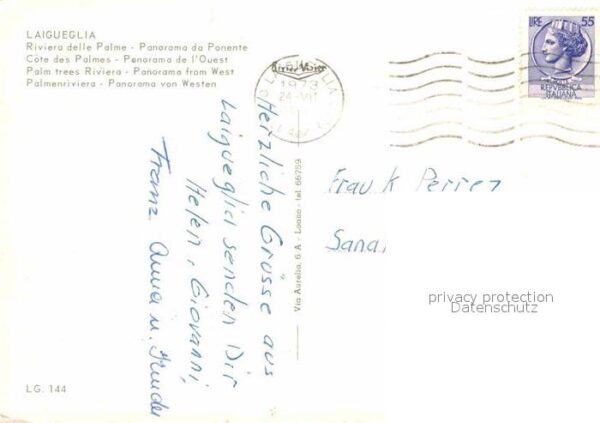 LAIGUEGLIA
Riviera delle Palme - Panorama da Ponente
Côte des Palmes - Panorama de l'Ouest
Palm trees Riviera - Panorama from West
Palmenriviera - Panorama von Westen
LIRE 55
REPVBBLICA
ITALIANA
1973
24-VII
Herzliche Grüsse aus
Laigueglia senden Dir
Helen, Giovanni,
Franz Anna u. Kinder
Via Aurelia, 6 A - Loano - tel. 66759
Frau K Perrez
Sana
privacy protection
Datenschutz
LG. 144